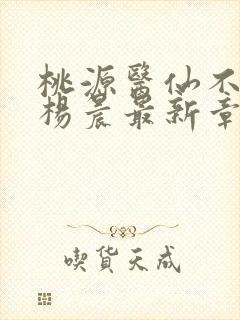 桃源醫仙不
楊晨最新章
喫貨天成